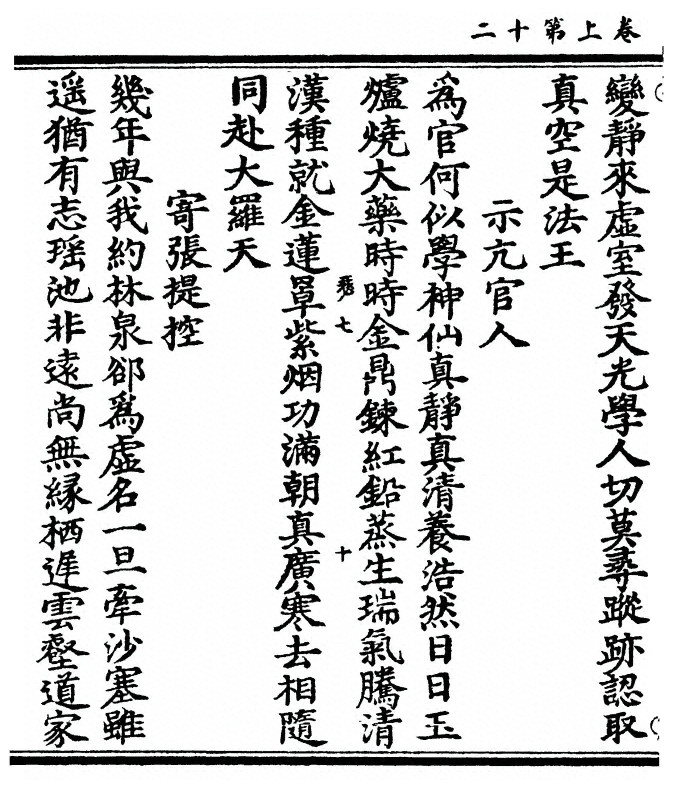 卷上第十二
變靜來虛室發天光學人切莫尋蹤跡認取
真空是法王
示亢官人
為官何似學神仙真靜真清養浩然日日玉
爐燒大藥時時金鼎鍊紅鉛蒸生瑞氣騰清
七
十
漢種就金蓮罩紫烟功滿朝真廣寒去相隨
同赴大羅天
寄張提控
幾年與我約林泉卻為虛名一旦牽沙塞雖
遥猶有志瑶池非遠尚無緣栖遲雲壑道家